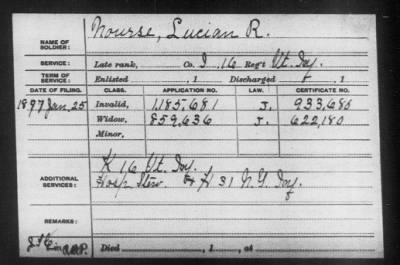 NAME OF SOLDIER: Nourse, Lucian R.
SERVICE: Late rank, Co. I, 16 Reg't Vt. Inf.
TERM OF SERVICE: Enlisted , 1 Discharged , 1
DATE OF FILING. CLASS. APPLICATION NO. LAW. CERTIFICATE NO.
1897 Jan. 25 Invalid, 1,185,681 J. 933,686
Widow, 859,636 J. 622,180
Minor,
ADDITIONAL SERVICES: K 16 Vt. Inf.
Hosp Stew. H 31 N.Y. Inf.
REMARKS:
Died , 1 , at